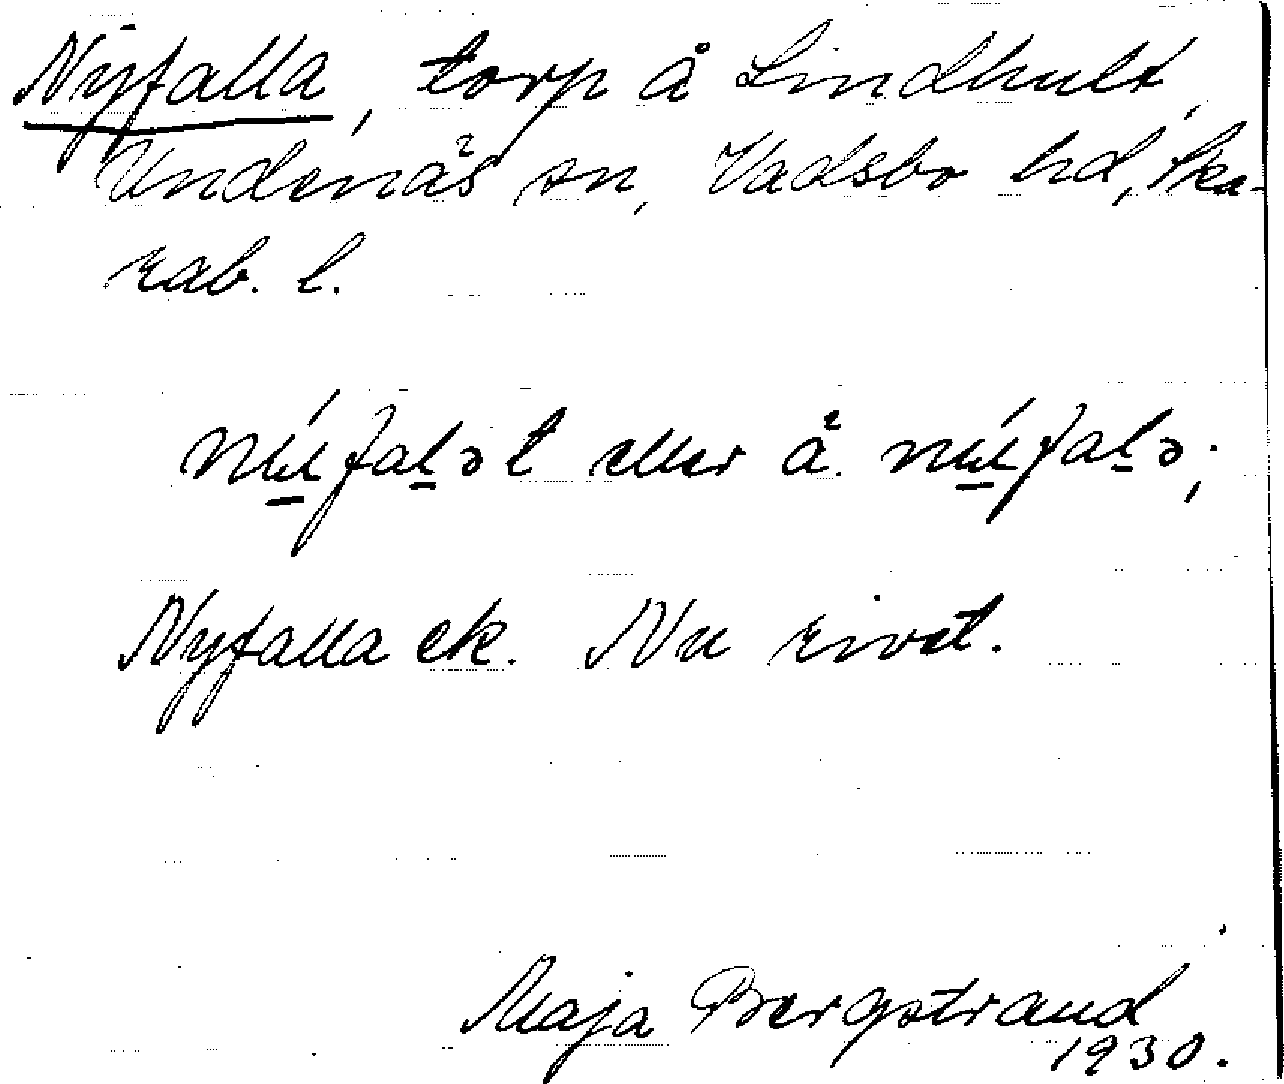 Nyfalla, torp å Lindhult,
Undenäs sn, Vadsbo hd, Ska-
rab. l.
nú̲fal̲ət eller å nú̲fal̲ə;
Nyfalla ek. Nu rivet.
Maja Bergstrand
1930.